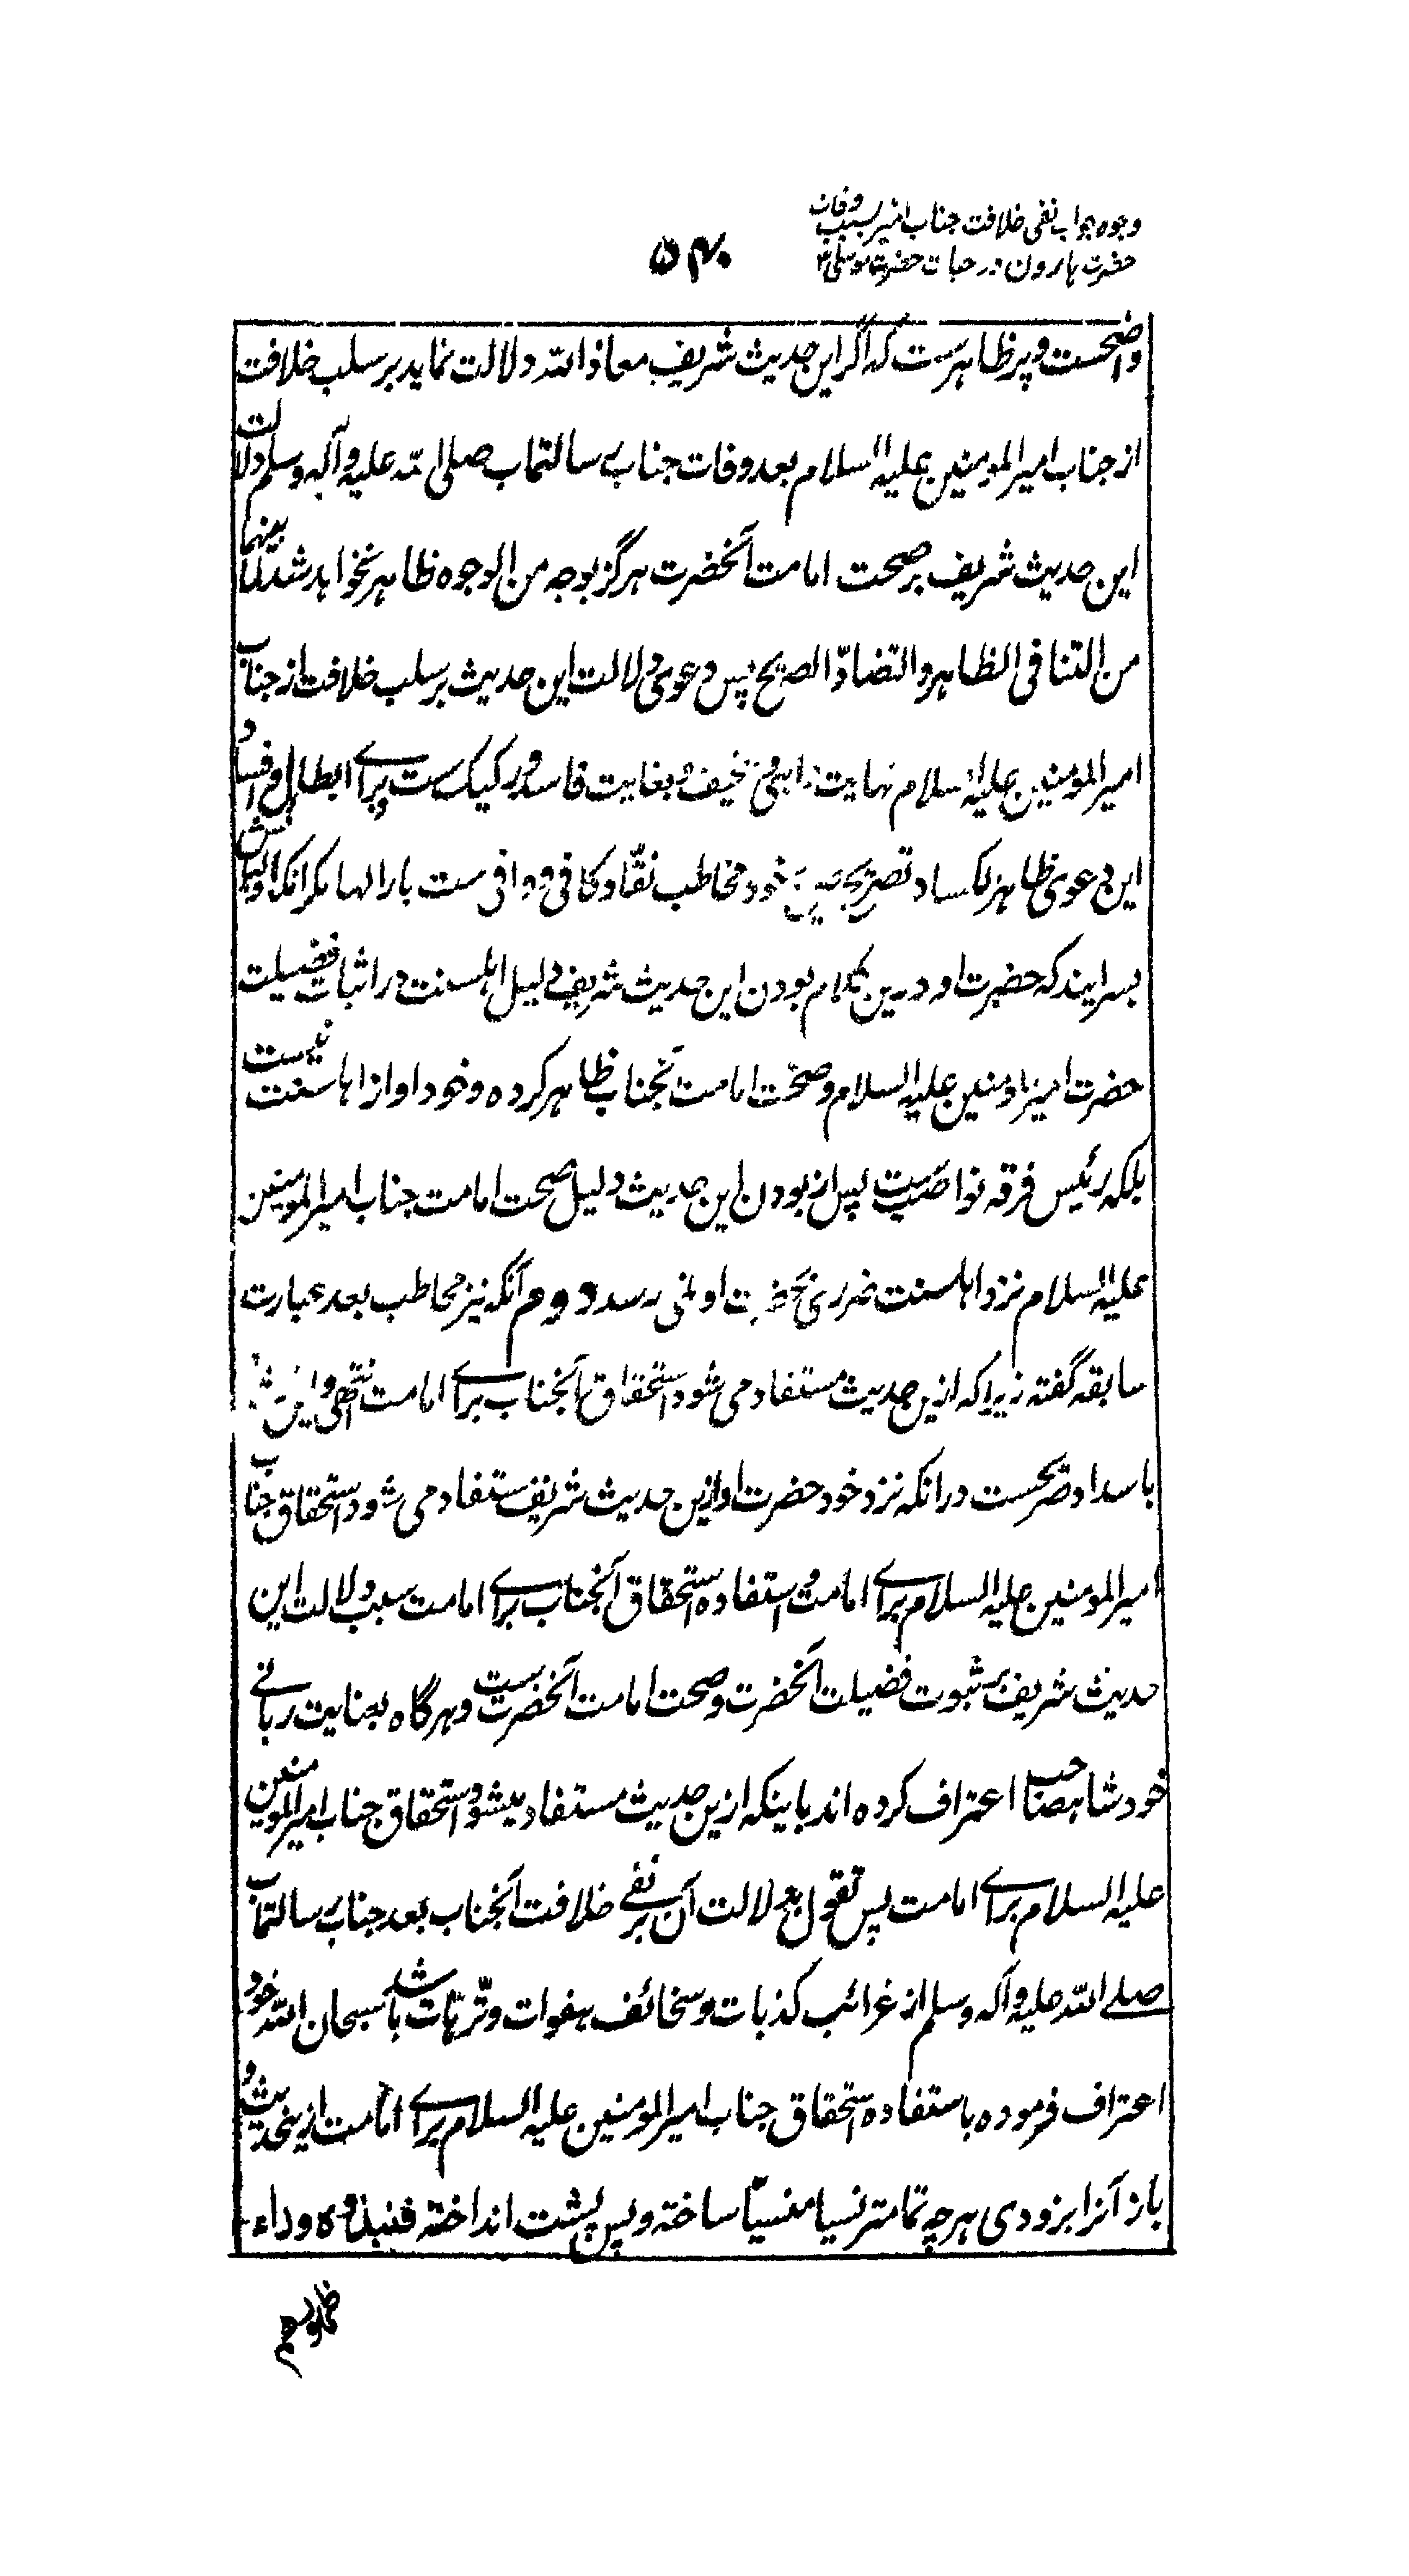 وجوه جواب نفی خلافت جناب امیر بسبب وفات
حضرت هارون در حیات حضرت موسی ۳
۵۴۰
واضحست و پر ظاهرست که اگر این حدیث شریف معاذ الله دلالت نماید بر سلب خلافت
از جناب امیر المومنین علیه السلام بعد وفات جناب رسالتماب صلی الله علیه و آله وسلم دلالت
این حدیث شریف بر صحت امامت آنحضرت هرگز بوجه من الوجوه ظاهر نخواهد شد لما بینهما
من التنافی الظاهر والتضادّ الصریح پس دعوی دلالت این حدیث بر سلب خلافت از جناب
امیر المومنین علیه السلام نهایت واهی و سخیف و بغایت فاسد و رکیک ست و برای ابطال و افساد
این دعوی ظاهر الکساد تصریح خود مخاطب نقّاد کافی و وافی ست بارالها مگر آنکه اولیایش
بسرایند که حضرت او درین کلام بودن این حدیث شریف دلیل اهلسنت در اثبات فضیلت
حضرت امیر المومنین علیه السلام و صحّت امامت آنجناب ظاهر کرده و خود او از اهلسنت نیست
بلکه رئیس فرقه نواصب ست پس از بودن این حدیث دلیل صحت امامت جناب امیر المومنین
علیه السلام نزد اهلسنت ضرری بحضرت او نمی رسد دوم آنکه نیز مخاطب بعد عبارت
سابقه گفته زیرا که ازین حدیث مستفاد می شود استحقاق آنجناب برای امامت انتهی و این
با سداد صریحست در آنکه نزد خود حضرت او ازین حدیث شریف مستفاد می شود استحقاق جناب
امیر المومنین علیه السلام برای امامت و استفاده استحقاق آنجناب برای امامت سبب دلالت این
حدیث شریف بر ثبوت فضیلت آنحضرت و صحت امامت آنحضرت ست و هرگاه بعنایت ربانے
خود شاهصاحب اعتراف کرده اند باینکه ازین حدیث مستفاد میشود استحقاق جناب امیر المومنین
علیه السلام برای امامت پس تقول بدلالت آن بر نفی خلافت آنجناب بعد جناب رسالتماب
صلی الله علیه و آله وسلم از غرائب کذبات و سخائف هفوات و ترّهات باشد سبحان الله خود
اعتراف فرموده باستفاده استحقاق جناب امیر المومنین علیه السلام برای امامت ازینحدیث و
باز آنرا بزودی هرچه تمامتر نسیا منسیّا ساخته و پس پشت انداخته فنبذوه وراء
ظهورهم